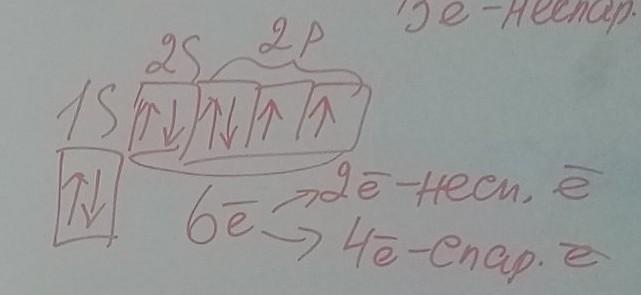 3e-неспар.
2S 2P
1S ↑↓ ↑↓ ↑ ↑
↑↓
6ē → 2ē-несп. ē
→ 4ē-спар. ē